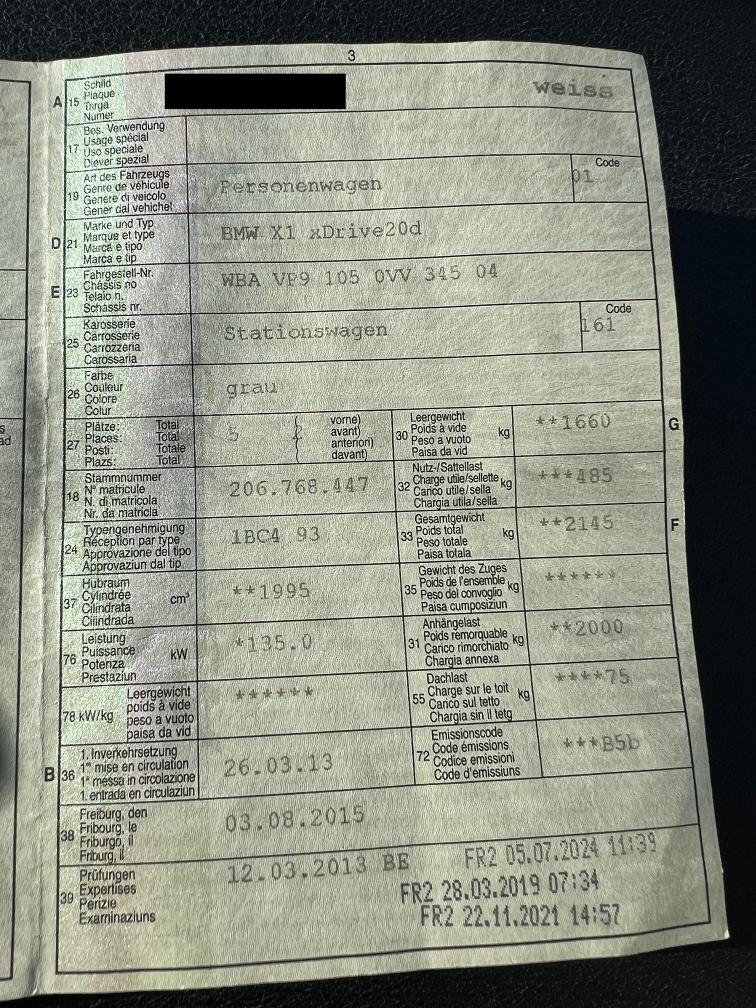 3
A 15 Schild
Plaque
Targa
Numer
weiss
17 Bes. Verwendung
Usage spécial
Uso speciale
Diever spezial
19 Art des Fahrzeugs
Genre de véhicule
Genere di veicolo
Gener dal vehichel
Personenwagen
Code
01
D 21 Marke und Typ
Marque et type
Marca e tipo
Marca e tip
BMW X1 xDrive20d
E 23 Fahrgestell-Nr.
Châssis no
Telaio n.
Schassis nr.
WBA VP9 105 0VV 345 04
25 Karosserie
Carrosserie
Carrozzeria
Carossaria
Stationswagen
Code
161
26 Farbe
Couleur
Colore
Colur
grau
27 Plätze: Total
Places: Total
Posti: Totale
Plazs: Total
5
vorne)
avant)
anteriori)
davant)
30 Leergewicht
Poids à vide
Peso a vuoto
Paisa da vid
kg
**1660
G
18 Stammnummer
N° matricule
N. di matricola
Nr. da matricla
206.768.447
32 Nutz-/Sattellast
Charge utile/sellette
Carico utile/sella
Chargia utila/sella
kg
***485
24 Typengenehmigung
Réception par type
Approvazione del tipo
Approvaziun dal tip
1BC4 93
33 Gesamtgewicht
Poids total
Peso totale
Paisa totala
kg
**2145
F
37 Hubraum
Cylindrée
Cilindrata
Cilindrada
cm³
**1995
35 Gewicht des Zuges
Poids de l'ensemble
Peso del convoglio
Paisa cumposiziun
kg
******
76 Leistung
Puissance
Potenza
Prestaziun
kW
*135.0
31 Anhängelast
Poids remorquable
Carico rimorchiato
Chargia annexa
kg
**2000
78 kW/kg
Leergewicht
poids à vide
peso a vuoto
paisa da vid
******
55 Dachlast
Charge sur le toit
Carico sul tetto
Chargia sin il tetg
kg
****75
B 36 1. Inverkehrsetzung
1re mise en circulation
1a messa in circolazione
1. entrada en circulaziun
26.03.13
72 Emissionscode
Code émissions
Codice emissioni
Code d'emissiuns
***B5b
38 Freiburg, den
Fribourg, le
Friburgo, il
Friburg, il
03.08.2015
39 Prüfungen
Expertises
Perizie
Examinaziuns
12.03.2013 BE
FR2 05.07.2024 11:39
FR2 28.03.2019 07:34
FR2 22.11.2021 14:57